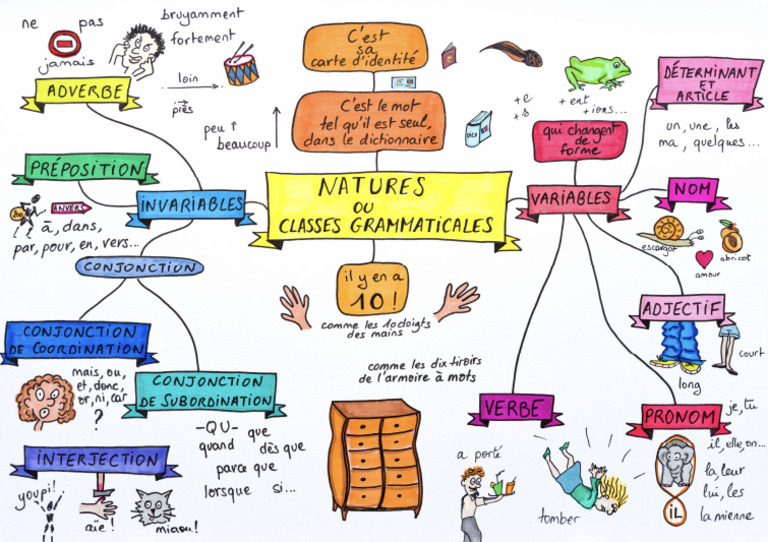 ne pas
jamais
bruyamment
fortement
loin
près
peu
beaucoup
ADVERBE
C'est
sa
carte d'identité
C'est le mot
tel qu'il est seul,
dans le dictionnaire
DICO
+e
+s
+ent
+ions...
qui changent
de
forme
DÉTERMINANT
ET
ARTICLE
un, une, les
ma, quelques...
PRÉPOSITION
ANVERS
à, dans,
par, pour, en, vers...
INVARIABLES
NATURES
OU
CLASSES GRAMMATICALES
VARIABLES
NOM
escargot
amour
abricot
CONJONCTION
il y en a
10!
comme les 10 doigts
des mains
ADJECTIF
long
court
CONJONCTION
DE COORDINATION
mais, ou,
et, donc,
or, ni, car
?
CONJONCTION
DE SUBORDINATION
-QU- que
quand dès que
parce que
lorsque si...
comme les dix tiroirs
de l'armoire à mots
VERBE
a porté
tomber
PRONOM
je, tu
il, elle, on...
la, leur
lui, les
la mienne
iL
INTERJECTION
youpi!
aïe!
miaou!